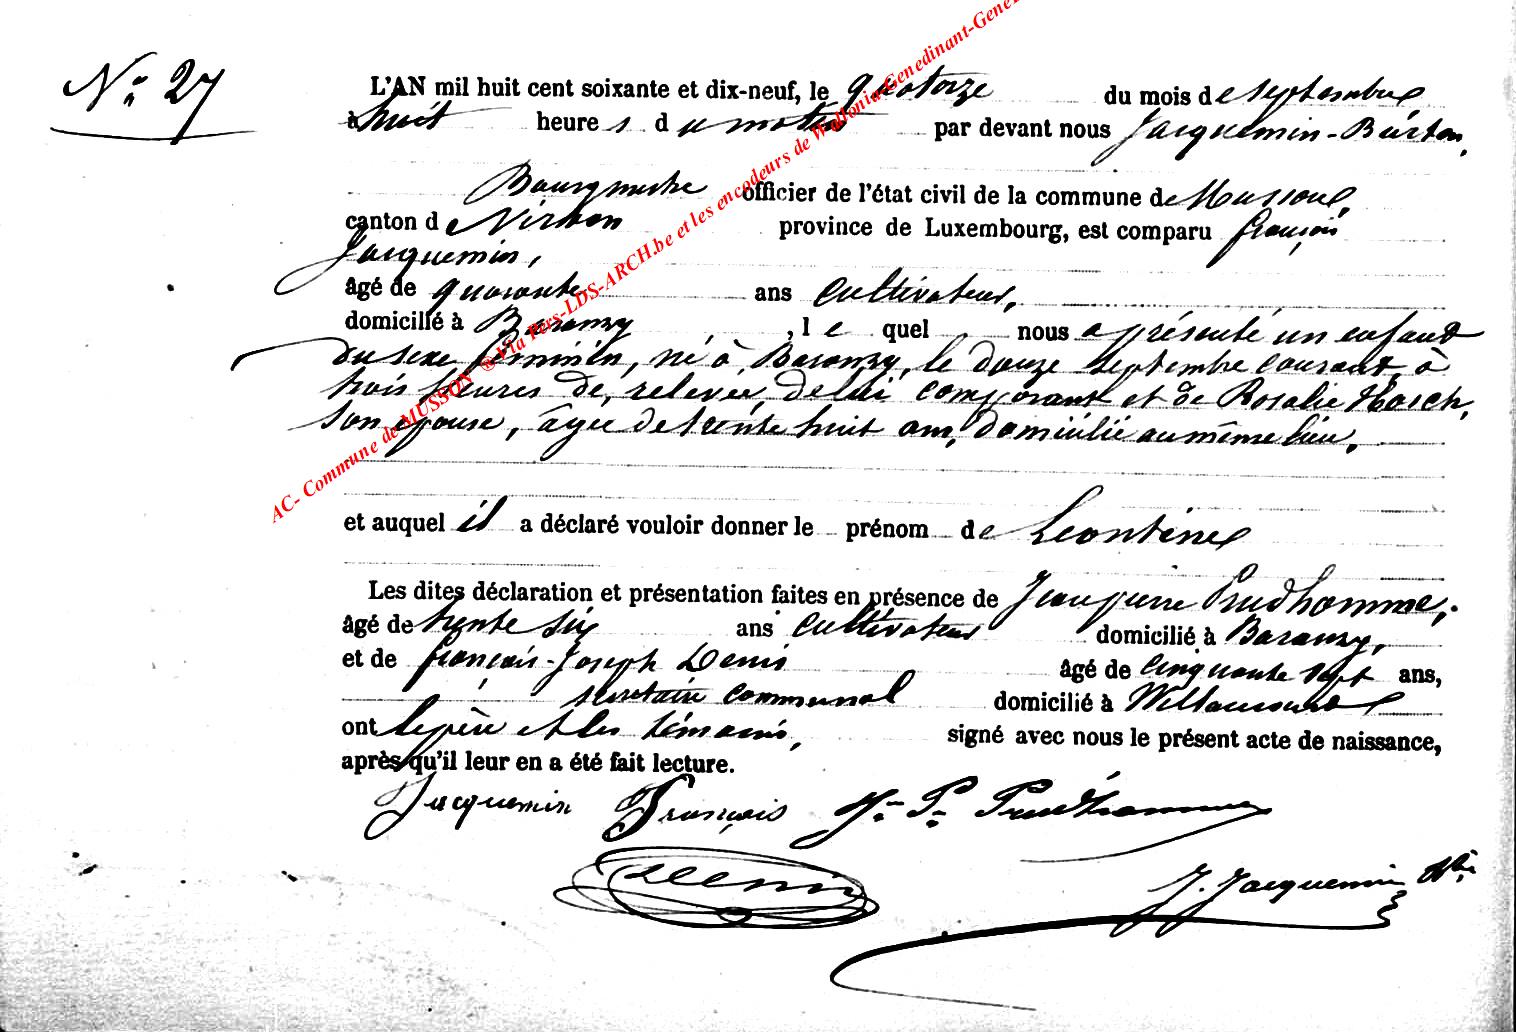 No. 27
L'AN mil huit cent soixante et dix-neuf, le quatorze du mois de septembre
à huit heures du matin par devant nous Jacquemin-Burton,
Bourgmestre officier de l'état civil de la commune de Musson,
canton de Virton province de Luxembourg, est comparu françois
Jacquemin,
âgé de quarante ans cultivateur,
domicilié à Baranzy, lequel nous a présenté un enfant
du sexe féminin, né à Baranzy, le douze septembre courant, à
trois heures de relevée, de lui comparant et de Rosalie Hosch,
son épouse, âgée de trente huit ans, domiciliée au même lieu.
et auquel il a déclaré vouloir donner le prénom de Leontine
Les dites déclaration et présentation faites en présence de Jean pierre Prudhomme,
âgé de trente six ans cultivateur domicilié à Baranzy,
et de françois-Joseph Denis âgé de cinquante sept ans,
secretaire communal domicilié à Willancourt
ont le père et les témoins, signé avec nous le présent acte de naissance,
après qu'il leur en a été fait lecture.
Jacquemin François J.n P.re Prudhomme
Denis
J. Jacquemin
AC- Commune de MUSSON ® Via Pers-LDS-ARCH.be et les encodeurs de Wallonia-Genedinant-Gene